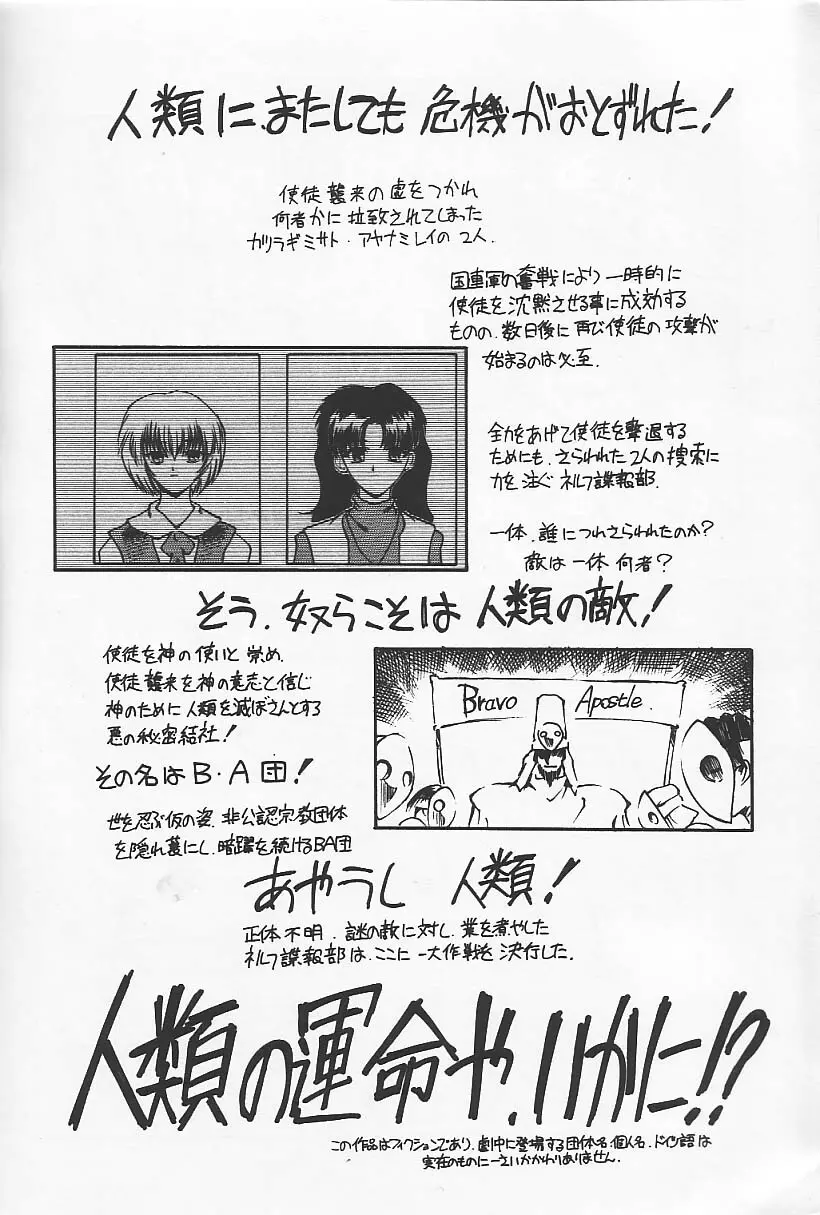 人類に、またしても危機がおとずれた!
使徒襲来の虚をつかれ
何者かに拉致されてしまった
カツラギミサト・アヤナミレイの2人.
国連軍の奮戦により一時的に
使徒を沈黙させる事に成効する
ものの、数日後に再び使徒の攻撃が
始まるのは必至.
全力をあげて使徒を撃退する
ためにも、さらわれた2人の捜索に
力を注ぐネルフ諜報部.
一体、誰につれさらわれたのか?
敵は一体何者?
そう、奴らこそは人類の敵!
使徒を神の使いと崇め、
使徒襲来を神の意志と信じ
神のために人類を滅ぼさんとする
悪の秘密結社!
その名はB・A団!
Bravo Apostle.
世を忍ぶ仮の姿、非公認宗教団体
を隠れ蓑にし、暗躍を続けるBA団
あやうし 人類!
正体不明、謎の敵に対し、業を煮やした
ネルフ諜報部は、ここに一大作戦を決行した.
人類の運命や、いかに!!?
この作品はフィクションであり、劇中に登場する団体名、個人名、ドイツ語は
実在のものに一さいかかわりありません.